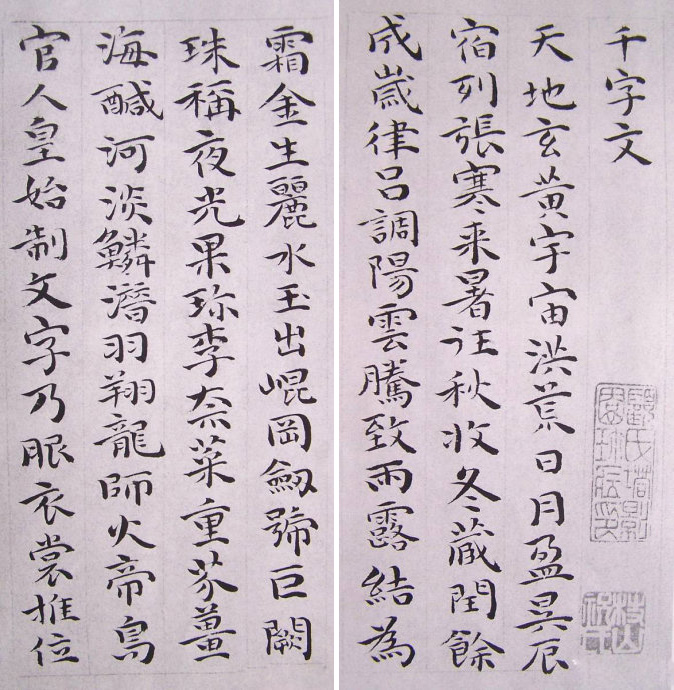 千字文
天地玄黃宇宙洪荒日月盈昃辰
宿列張寒来暑往秋收冬藏閏餘
成歲律呂調陽雲騰致雨露結為
霜金生麗水玉出崐岡劔號巨闕
珠稱夜光果珎李柰菜重芥薑
海醎河淡鱗潛羽翔龍師火帝鳥
官人皇始制文字乃服衣裳推位